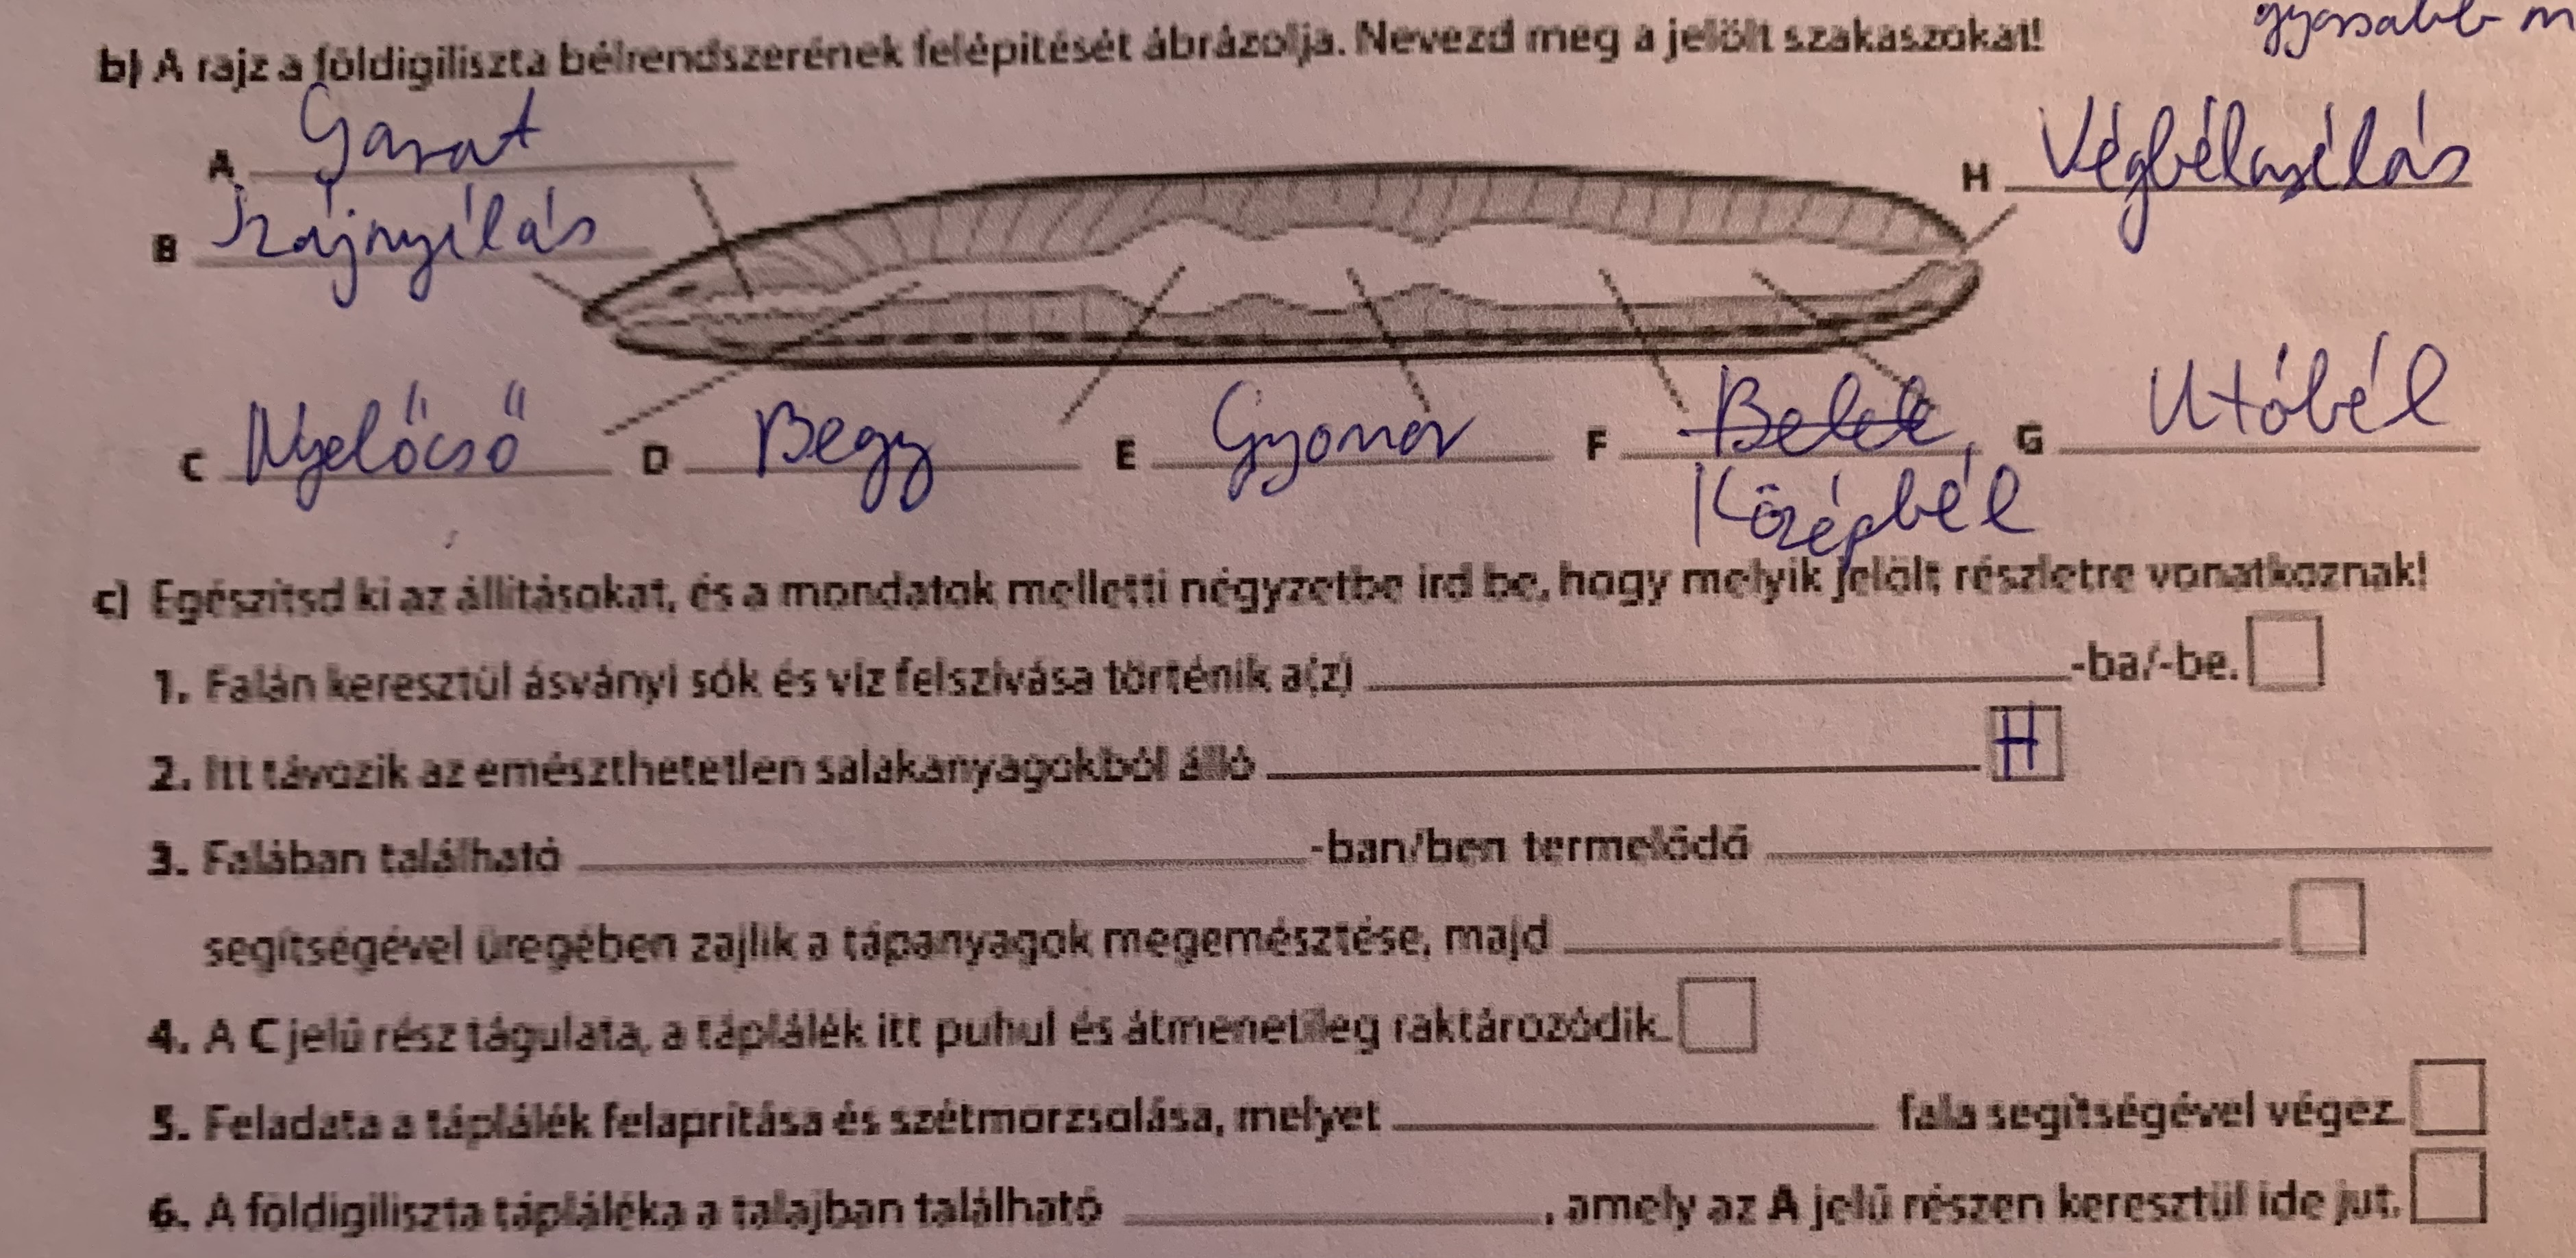 gyorsabb m
b) A rajz a földigiliszta bélrendszerének felépítését ábrázolja. Nevezd meg a jelölt szakaszokat!
A Garat
H Végbélnyílás
B Szájnyílás
C Nyelőcső D Begy E Gyomor F Belek, G Utóbél
Középbél
c) Egészítsd ki az állításokat, és a mondatok melletti négyzetbe írd be, hogy melyik jelölt részletre vonatkoznak!
1. Falán keresztül ásványi sók és víz felszívása történik a(z) -ba/-be.
2. Itt távozik az emészthetetlen salakanyagokból álló H
3. Falában található -ban/ben termelődő
segítségével üregében zajlik a tápanyagok megemésztése, majd
4. A C jelű rész tágulata, a táplálék itt puhul és átmenetileg raktározódik.
5. Feladata a táplálék felaprítása és szétmorzsolása, melyet fala segítségével végez.
6. A földigiliszta tápláléka a talajban található , amely az A jelű részen keresztül ide jut.